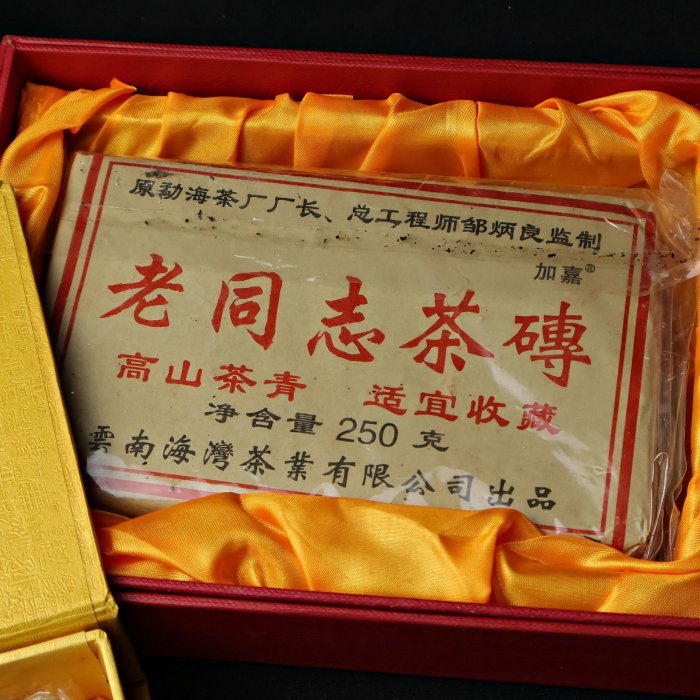 原勐海茶厂厂长、总工程师邹炳良监制
加嘉®
老同志茶磚
高山茶青 适宜收藏
净含量 250 克
雲南海灣茶業有限公司出品